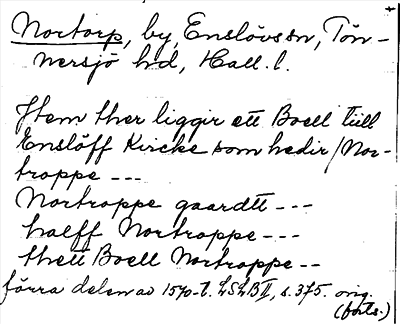 Nortorp, by, Enslövs sn, Tön-
nersjö hd, Hall. l.
Item ther liggir ett Boell tiill
Enslöff Kircke som hedir / Nor-
troppe ---
Nortroppe gaardtt ---
halff Nortroppe ---
thett Boell Nortroppe --
förra delen av 1570-t. LSLB II, s. 375. orig.
(forts.)